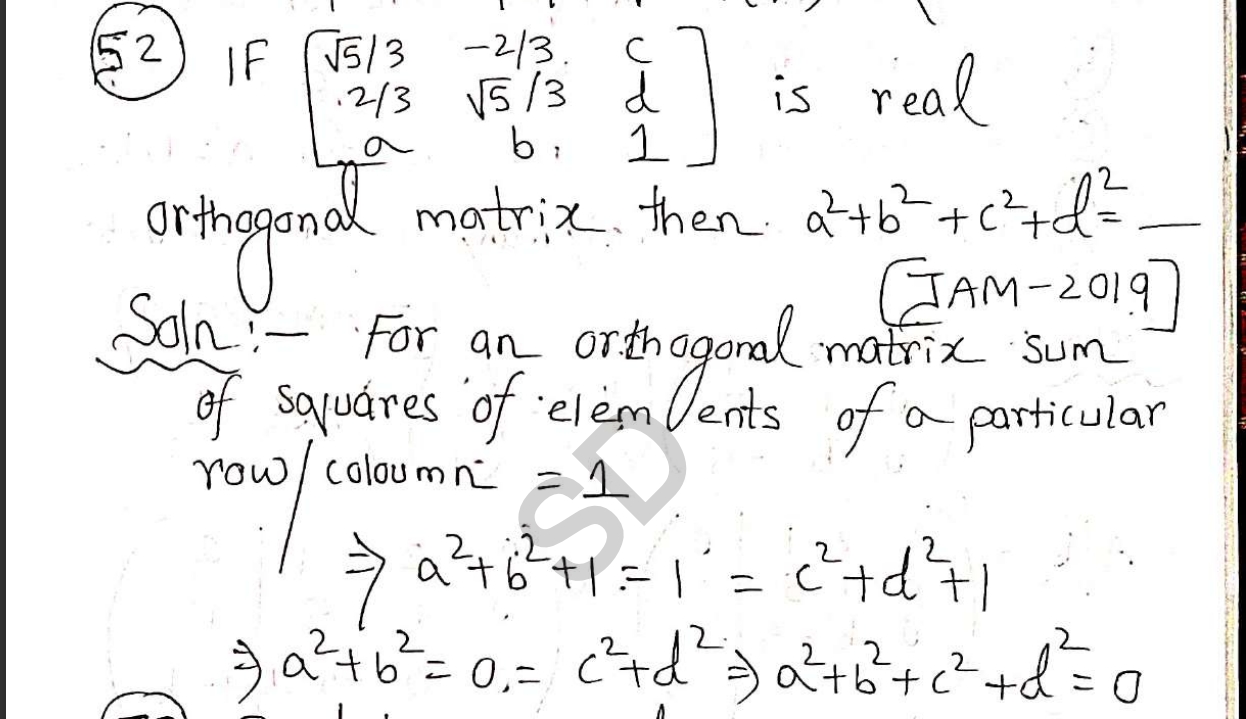 52 IF [ √5/3 -2/3 c
2/3 √5/3 d
a b 1 ] is real
orthogonal matrix then a²+b²+c²+d²= __
[JAM-2019]
Soln:- For an orthogonal matrix sum
of squares of elements of a particular
row/coloumn = 1
SD
⇒ a²+b²+1 = 1 = c²+d²+1
⇒ a²+b² = 0, = c²+d² ⇒ a²+b²+c²+d² = 0